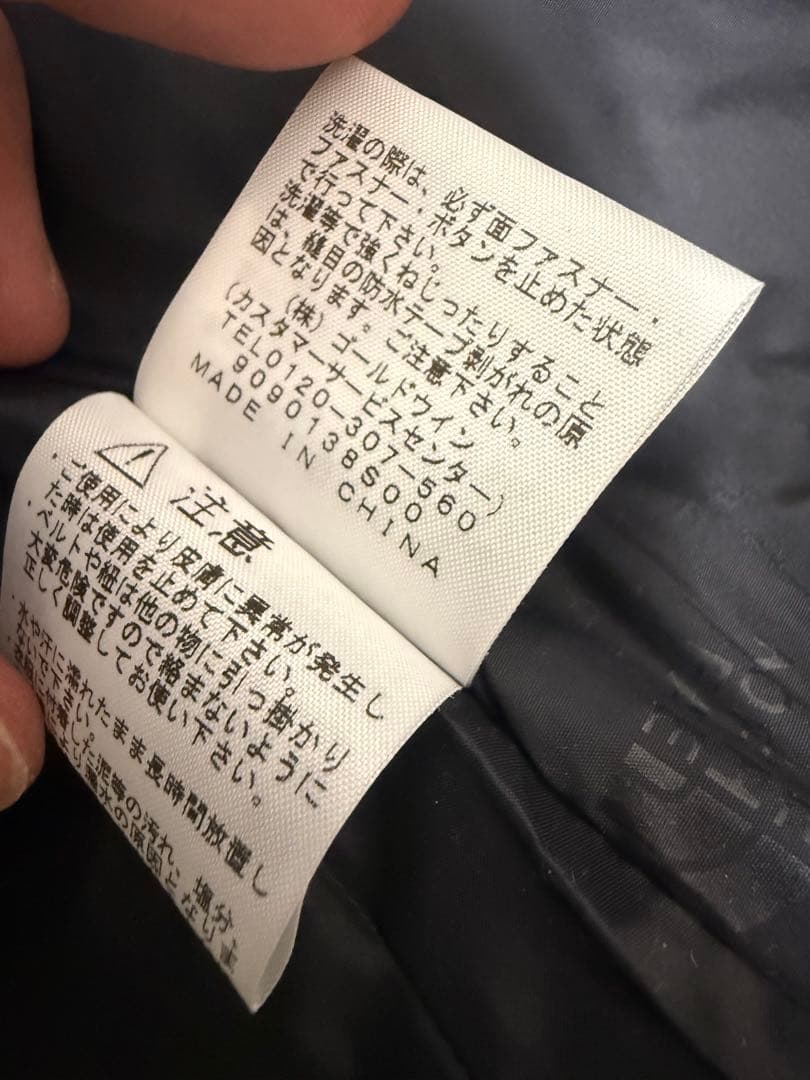 洗濯の際は、必ず面ファスナー・
ファスナー・ボタンを止めた状態
で行って下さい。
洗濯等で強くねじったりすること
は、縫目の防水テープ剥がれの原
因となります。ご注意下さい。
(株)ゴールドウイン
(カスタマーサービスセンター)
TEL0120-307-560
9090138S00
MADE IN CHINA
注意
・ご使用により皮膚に異常が発生し
た時は使用を止めて下さい。
・ベルトや紐は他の物に引っ掛かり
大変危険ですので絡まないように
正しく調整してお使い下さい。
・水や汗に濡れたまま長時間放置し
ないで下さい。
付着した泥等の汚れ、塩分
により漏水の原因となりま